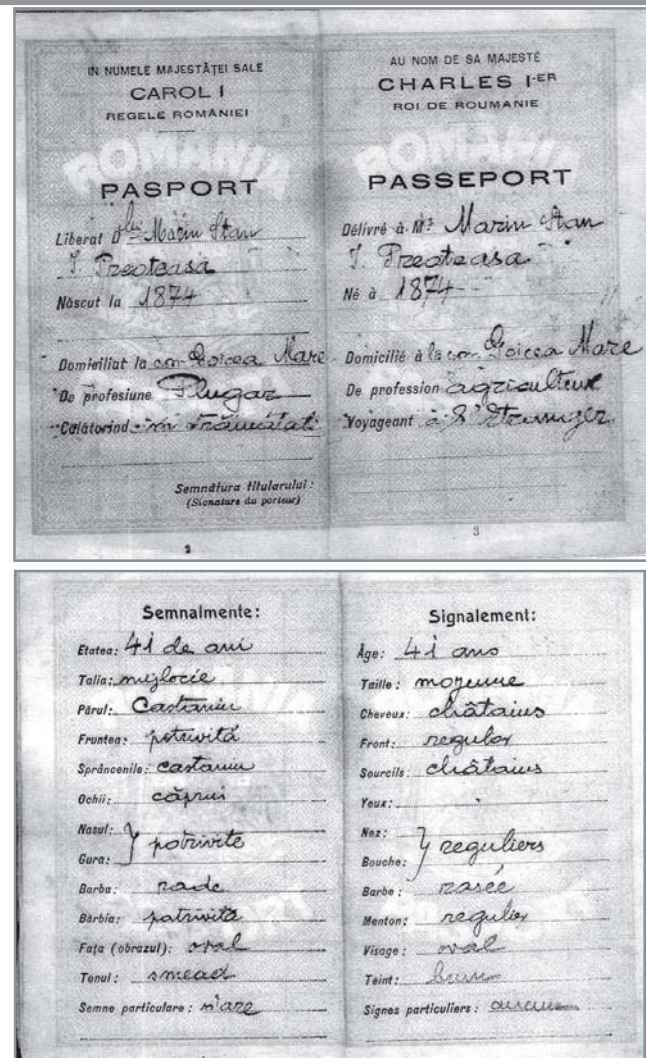 IN NUMELE MAJESTĂȚEI SALE
CAROL I
REGELE ROMÂNIEI
ROMANIA
PASPORT
Liberat D lui Marin Stan
I. Preoteasa
Născut la 1874
Domiciliat la com Goicea Mare
De profesiune Plugar
Călătorind în străinătate
Semnătura titularului:
(Signature du porteur)
2
AU NOM DE SA MAJESTÉ
CHARLES I-ER
ROI DE ROUMANIE
ROMANIA
PASSEPORT
Délivré à Mr Marin Stan
I. Preoteasa
Né à 1874
Domicilié à la com Goicea Mare
De profession agriculteur
Voyageant à
3
Semnalmente:
Etatea: 41 de ani
Talia: mijlocie
Părul: Castaniu
Fruntea: potrivită
Sprâncenile: castanii
Ochii: căprui
Nasul: } potrivite
Gura:
Barba: rade
Bărbia: potrivită
Fața (obrazul): oval
Tenul: smead
Semne particulare: n'are
Signalement:
Âge: 41 ans
Taille: moyenne
Cheveux: châtains
Front: regulier
Sourcils: châtains
Yeux:
Nez: } reguliers
Bouche:
Barbe: rasée
Menton: regulier
Visage: oval
Teint: brun
Signes particuliers: aucun